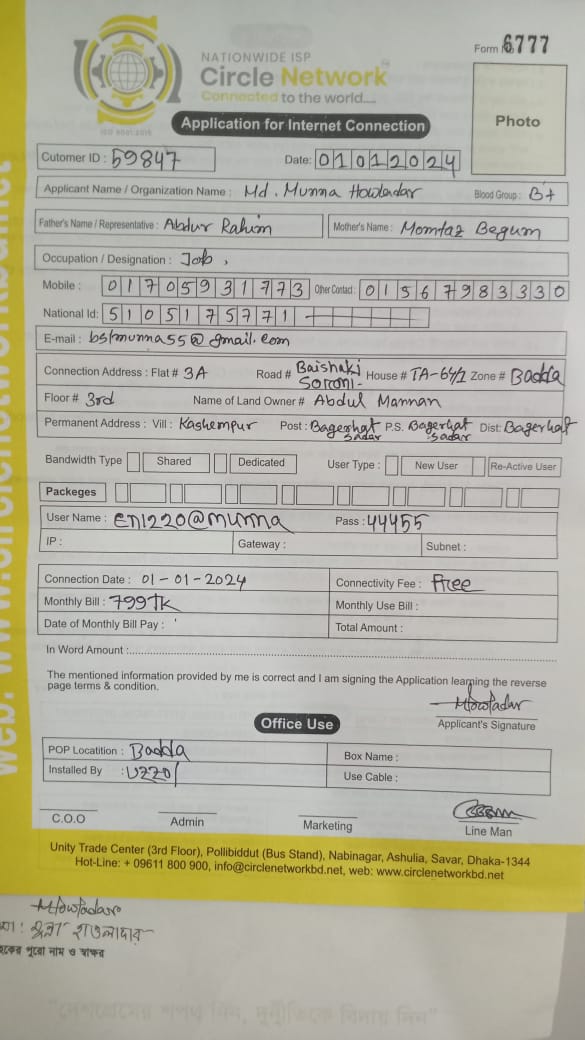 Form 6777
NATIONWIDE ISP
Circle Network
Connected to the world....
ISO 9001:2015
Application for Internet Connection
Photo
Cutomer ID : 59847 Date: 01012024
Applicant Name / Organization Name : Md. Munna Howladar Blood Group : B+
Father's Name / Representative : Abdur Rahim Mother's Name : Momtaz Begum
Occupation / Designation : Job,
Mobile : 01705931773 Other Contact : 01567983330
National Id: 5105175771
E-mail : bslmunna55@gmail.com
Connection Address : Flat # 3A Road # Baishaki Soroni- House # TA-64/1 Zone # Badda
Floor # 3rd Name of Land Owner # Abdul Mannan
Permanent Address : Vill : Kashempur Post : Bagerhat Sadar P.S. Bagerhat Sadar Dist: Bagerhat
Bandwidth Type Shared Dedicated User Type : New User Re-Active User
Packeges
User Name : en1220@munna Pass : 44455
IP : Gateway : Subnet :
Connection Date : 01-01-2024 Connectivity Fee : Free
Monthly Bill : 799TK Monthly Use Bill :
Date of Monthly Bill Pay : Total Amount :
In Word Amount :
The mentioned information provided by me is correct and I am signing the Application learning the reverse
page terms & condition.
Howladar
Applicant's Signature
Office Use
POP Locatition : Badda Box Name :
Installed By : Uzzol Use Cable :
C.O.O Admin Marketing Line Man
Unity Trade Center (3rd Floor), Pollibiddut (Bus Stand), Nabinagar, Ashulia, Savar, Dhaka-1344
Hot-Line: + 09611 800 900, info@circlenetworkbd.net, web: www.circlenetworkbd.net
web: www.circlenetworkbd.net
Howladar
মুন্না হাওলাদার
পুরো নাম ও স্বাক্ষর